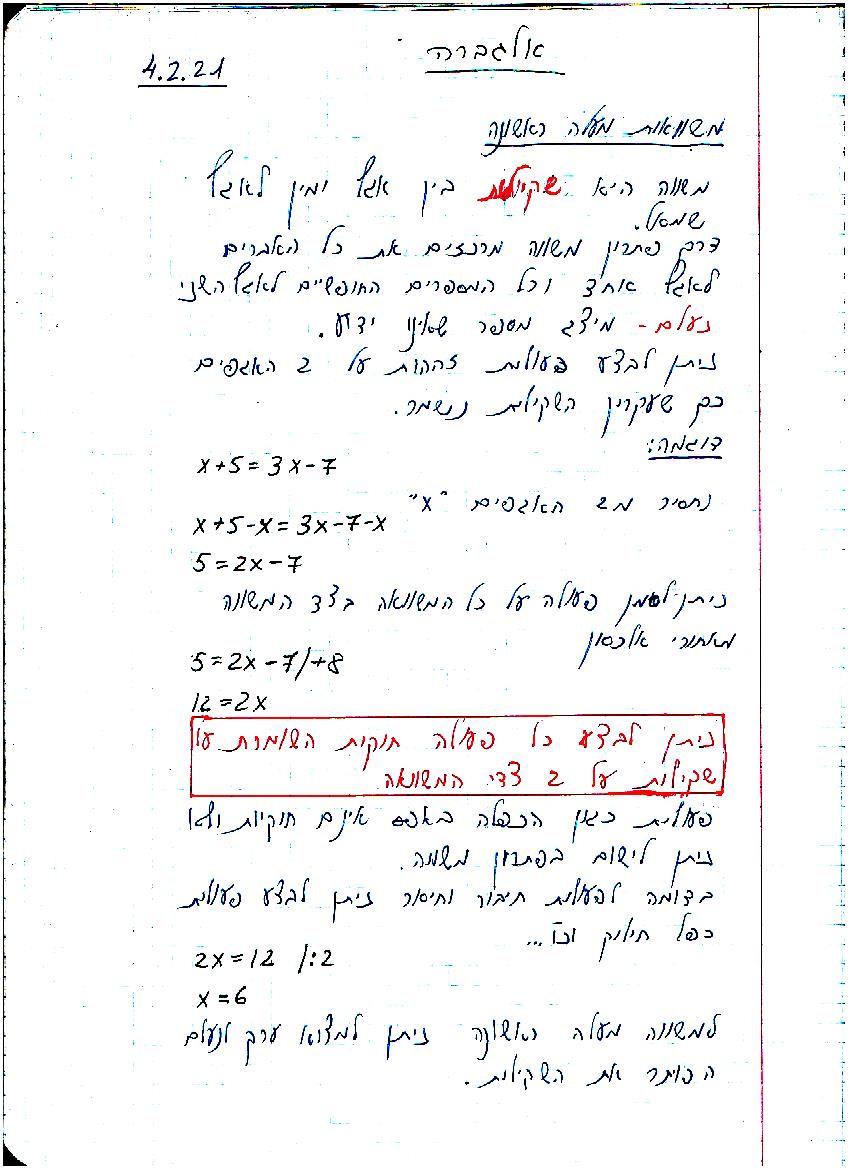 אלגברה
4.2.21
משוואות מעלה ראשונה
משווה היא שקילות בין אגף ימין לאגף
שמאל.
דרך פתרון משווה מרכזים את כל האברים
לאגף אחד וכל המספרים החופשיים לאגף השני
נעלם - מיצג מספר שאינו ידוע.
ניתן לבצע פעולות זההות על 2 האגפים
כך שעקרון השקילות נשמר.
דוגמה:
x+5=3x-7
נחסיר מ2 האגפים "x"
x+5-x=3x-7-x
5=2x-7
ניתן לסמן פעולה על כל המשוואה בצד המשווה
מאחורי אלכסון
5=2x-7/+8
12=2x
ניתן לבצע כל פעולה חוקות השומרת על
שקילות על 2 צדי המשוואה
פעולות כגון הכפלה באפס אינם חוקיות ולא
ניתן לישום בפתרון משווה.
בדומה לפעולות חיבור וחיסור ניתן לבצע פעולות
כפל חילוק וכו'...
2x=12 /:2
x=6
למשווה מעלה ראשונה ניתן למצוא ערך לנעלם
הפותר את השקילות.